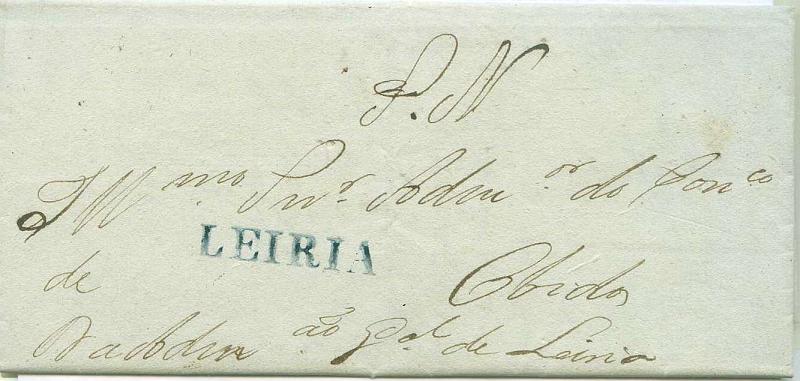 S. N
Illmo. Snr. Admor do Conco
LEIRIA
de Obidos
Da Admão Gal de Leiria